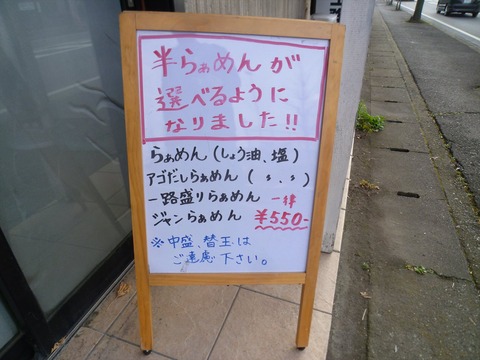 半らぁめんが
選べるように
なりました!!
らぁめん(しょう油、塩)
アゴだしらぁめん(〃、〃)
一路盛りらぁめん 一律
ジャンらぁめん ¥550-
※中盛、替玉は
ご遠慮下さい。